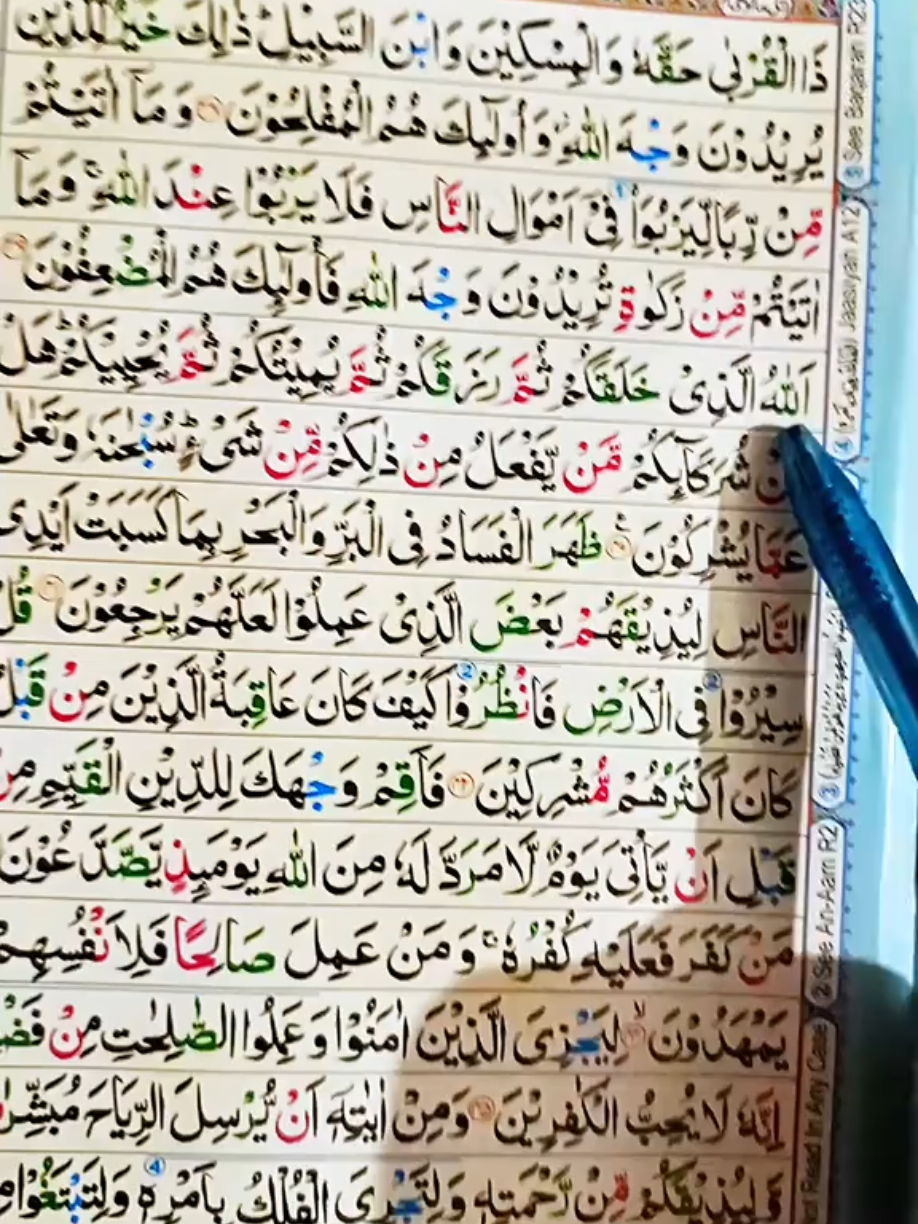 ذَا الْقُرْبٰى حَقَّهٗ وَالْمِسْكِيْنَ وَابْنَ السَّبِيْلِ ؕ ذٰلِكَ خَيْرٌ لِّلَّذِيْنَ
يُرِيْدُوْنَ وَجْهَ اللّٰهِ ؗ وَاُولٰٓئِكَ هُمُ الْمُفْلِحُوْنَ ۝٣٨ وَمَاۤ اٰتَيْتُمْ
مِّنْ رِّبًا لِّيَرْبُوَا۟ فِيْۤ اَمْوَالِ النَّاسِ فَلَا يَرْبُوْا عِنْدَ اللّٰهِ ۚ وَمَاۤ
اٰتَيْتُمْ مِّنْ زَكٰوةٍ تُرِيْدُوْنَ وَجْهَ اللّٰهِ فَاُولٰٓئِكَ هُمُ الْمُضْعِفُوْنَ ۝٣٩
اَللّٰهُ الَّذِيْ خَلَقَكُمْ ثُمَّ رَزَقَكُمْ ثُمَّ يُمِيْتُكُمْ ثُمَّ يُحْيِيْكُمْ ؕ هَلْ
شُرَكَآئِكُمْ مَّنْ يَّفْعَلُ مِنْ ذٰلِكُمْ مِّنْ شَيْءٍ ؕ سُبْحٰنَهٗ وَتَعٰلٰى
عَمَّا يُشْرِكُوْنَ ۝٤٠ ظَهَرَ الْفَسَادُ فِي الْبَرِّ وَالْبَحْرِ بِمَا كَسَبَتْ اَيْدِي
النَّاسِ لِيُذِيْقَهُمْ بَعْضَ الَّذِيْ عَمِلُوْا لَعَلَّهُمْ يَرْجِعُوْنَ ۝٤١ قُلْ
سِيْرُوْا فِي الْاَرْضِ فَانْظُرُوْا كَيْفَ كَانَ عَاقِبَةُ الَّذِيْنَ مِنْ قَبْلُ
كَانَ اَكْثَرُهُمْ مُّشْرِكِيْنَ ۝٤٢ فَاَقِمْ وَجْهَكَ لِلدِّيْنِ الْقَيِّمِ مِنْ
قَبْلِ اَنْ يَّاْتِيَ يَوْمٌ لَّا مَرَدَّ لَهٗ مِنَ اللّٰهِ يَوْمَئِذٍ يَّصَّدَّعُوْنَ
مَنْ كَفَرَ فَعَلَيْهِ كُفْرُهٗ ۚ وَمَنْ عَمِلَ صَالِحًا فَلِاَنْفُسِهِمْ
يَمْهَدُوْنَ ۝٤٤ لِيَجْزِيَ الَّذِيْنَ اٰمَنُوْا وَعَمِلُوا الصّٰلِحٰتِ مِنْ
اِنَّهٗ لَا يُحِبُّ الْكٰفِرِيْنَ ۝٤٥ وَمِنْ اٰيٰتِهٖۤ اَنْ يُّرْسِلَ الرِّيَاحَ
وَلِيُذِيْقَكُمْ مِّنْ رَّحْمَتِهٖ وَلِتَجْرِيَ الْفُلْكُ بِاَمْرِهٖ وَلِتَبْتَغُوْا
③ See Baqarah R23
④ Jaasiyah A12
② See An-Aam R2
Read In Any Case